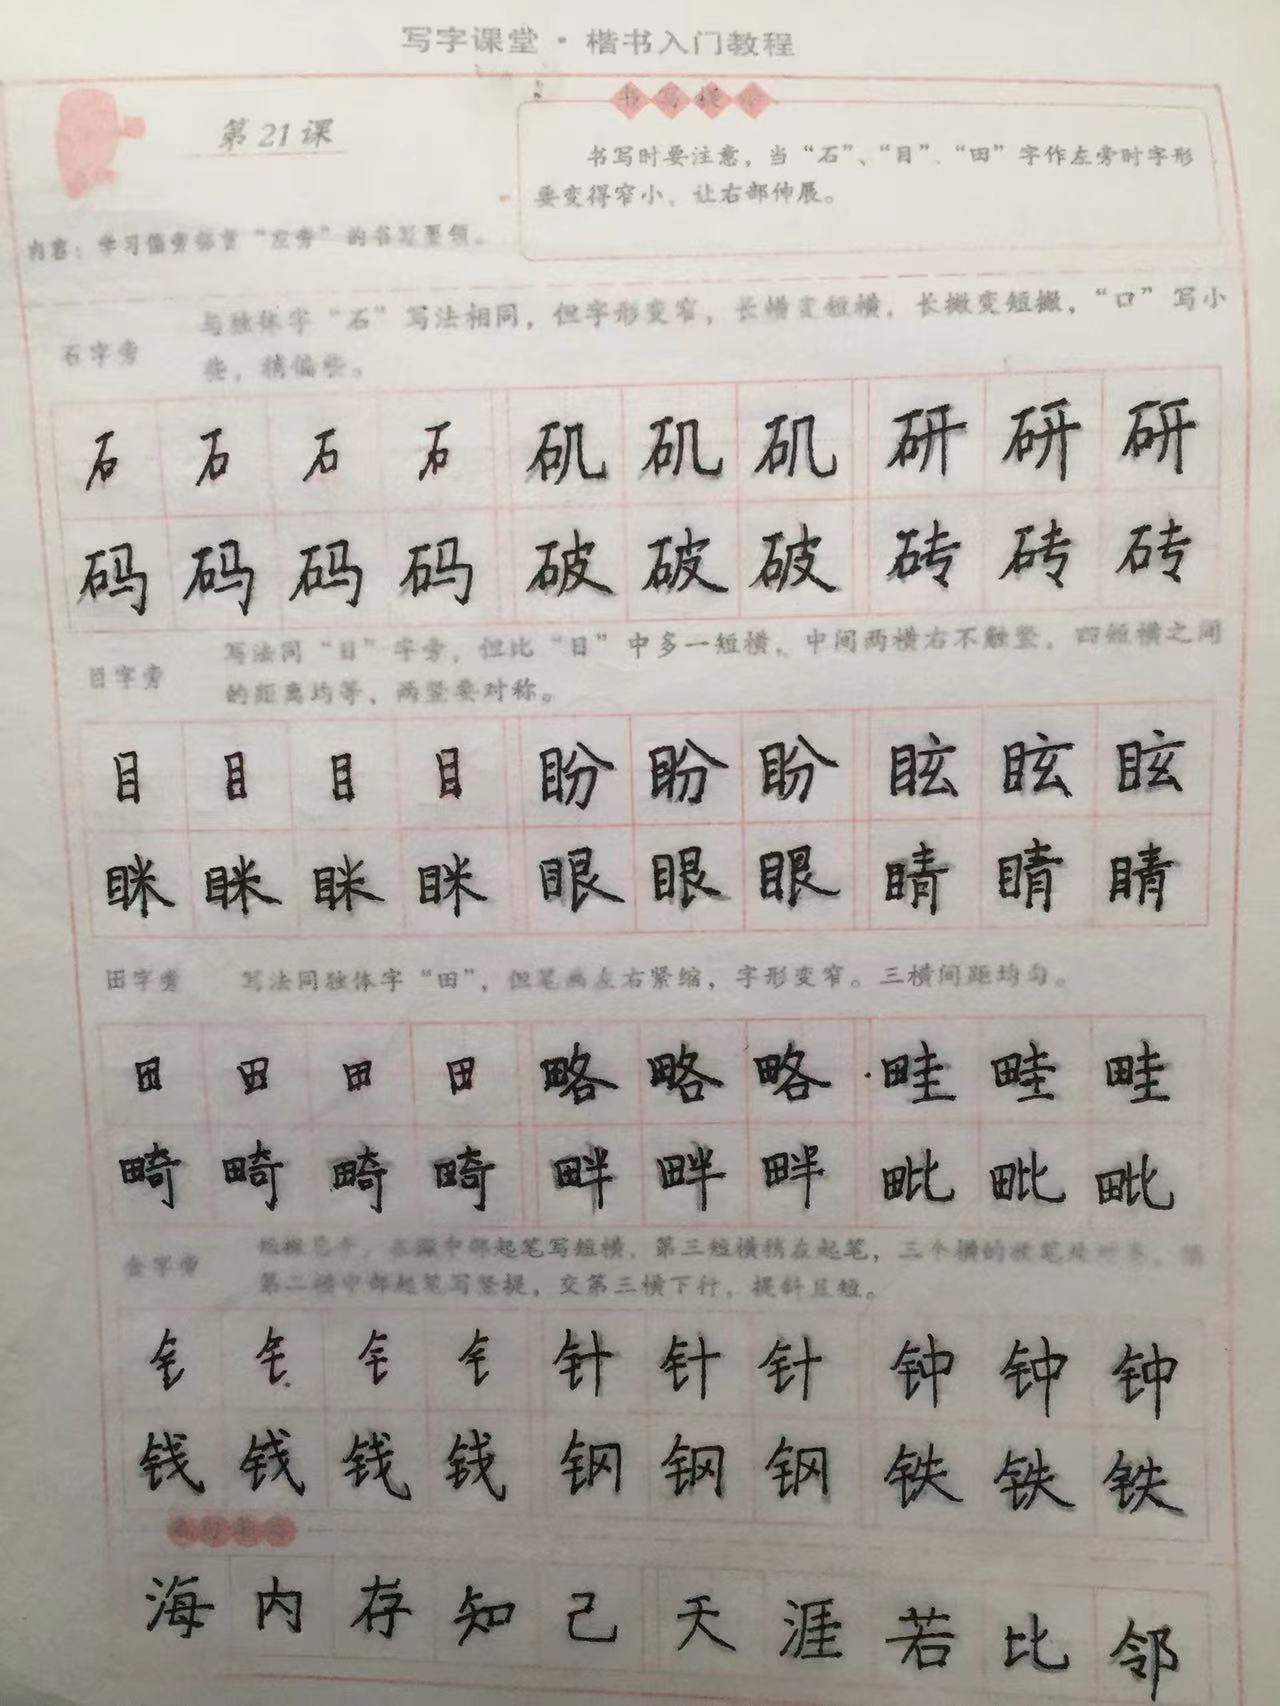 写字课堂·楷书入门教程
第21课
书写提示
书写时要注意，当“石”、“目”、“田”字作左旁时字形
要变得窄小、让右部伸展。
内容：学习偏旁部首“左旁”的书写要领。
石字旁
与独体字“石”写法相同，但字形变窄，长横变短横，长撇变短撇，“口”写小
些，稍偏些。
石 石 石 石 矶 矶 矶 研 研 研
码 码 码 码 破 破 破 砖 砖 砖
目字旁
写法同“日”字旁，但比“日”中多一短横，中间两横右不触竖，四短横之间
的距离均等，两竖要对称。
目 目 目 目 盼 盼 盼 眩 眩 眩
眯 眯 眯 眯 眼 眼 眼 睛 睛 睛
田字旁
写法同独体字“田”，但笔画左右紧缩，字形变窄。三横间距均匀。
田 田 田 田 略 略 略 畦 畦 畦
畸 畸 畸 畸 畔 畔 畔 毗 毗 毗
金字旁
起笔写短横，第三短横稍左起笔，三个横的收笔处
第二横中部起笔写竖提，交第三横下行，提斜且短。
钅 钅 钅 钅 针 针 针 钟 钟 钟
钱 钱 钱 钱 钢 钢 钢 铁 铁 铁
海 内 存 知 己 天 涯 若 比 邻